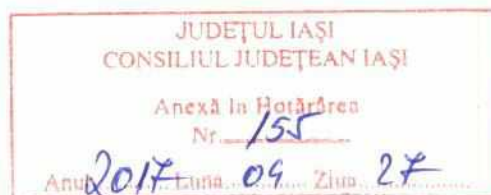 JUDEŢUL IAŞI
CONSILIUL JUDEŢEAN IAŞI
Anexă la Hotărârea
Nr. 155
Anul 2017 Luna 04 Ziua 27